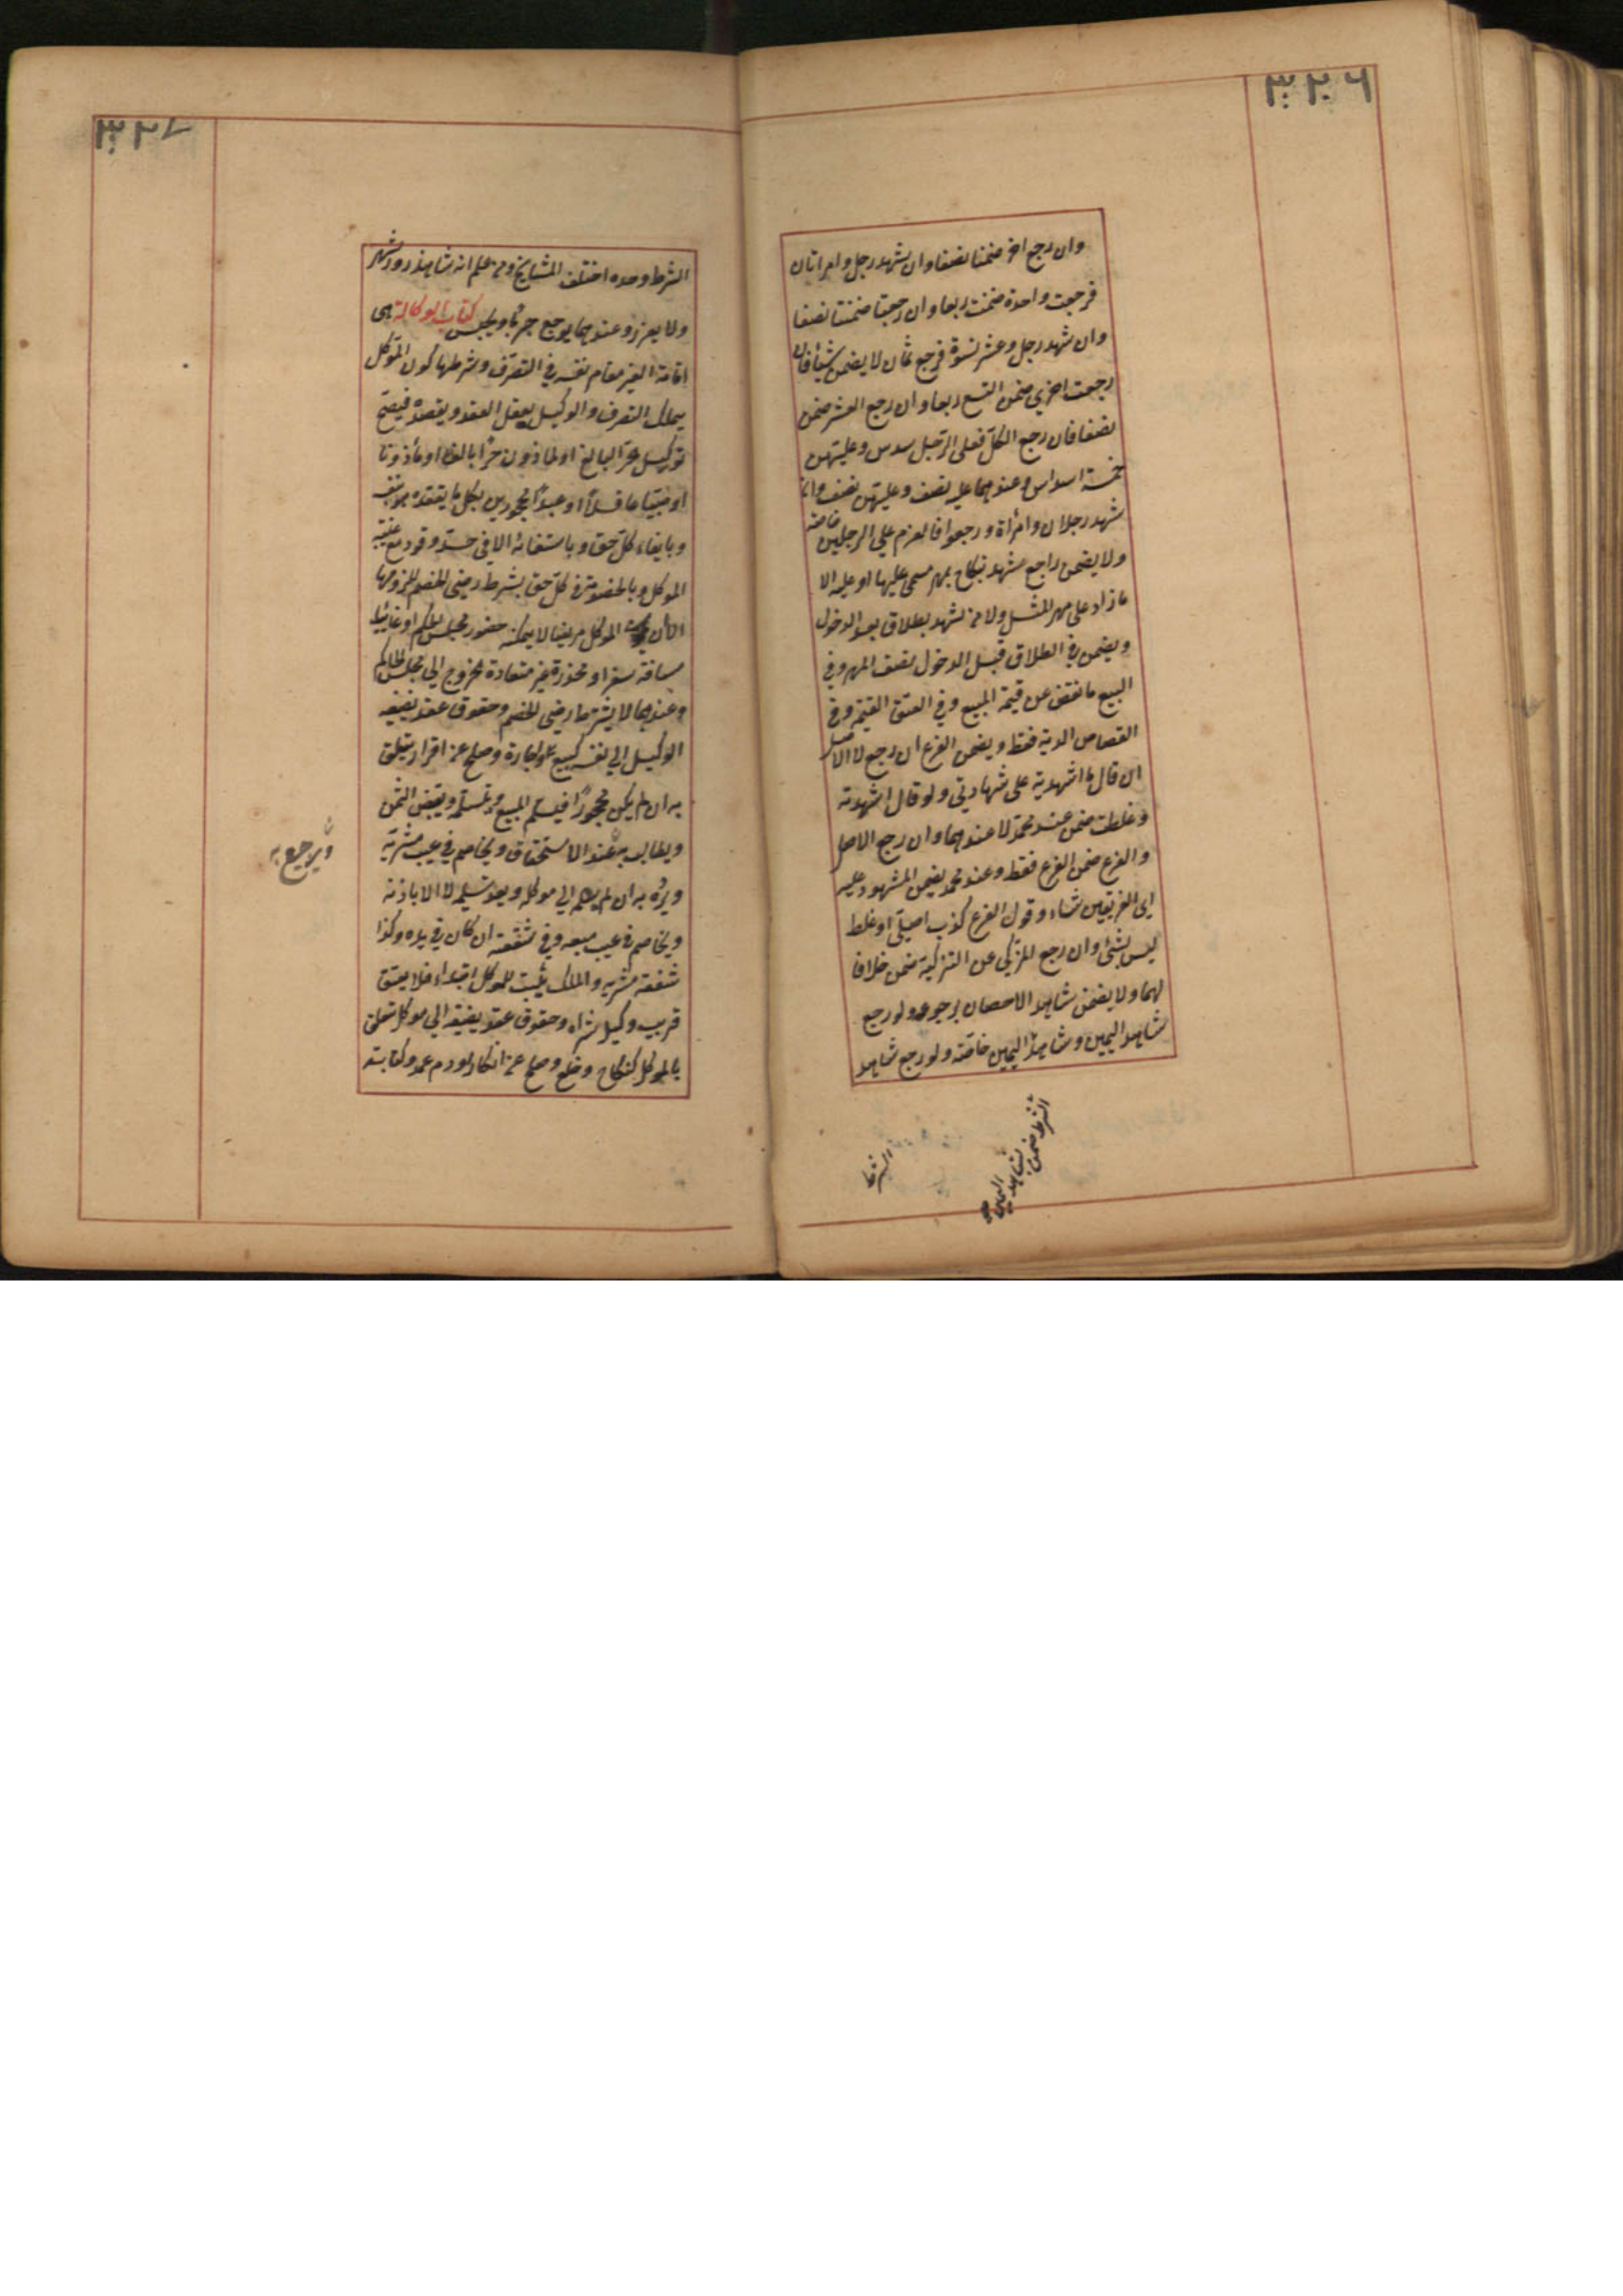 ٣٢٦
وان رجع اخر ضمنا نصفا وان شهد رجل وامراتان
فرجعت واحدة ضمنت ربعا وان رجعتا ضمنتا نصفا
وان شهد رجل وعشر نسوة فرجع ثمان لا يضمن شيأ فان
رجعت اخري ضمن التسع ربعا وان رجع العشر ضمن
نصفا فان رجع الكل فعلى الرجل سدس وعليهن
خمسة اسداس وعندهما عليه نصف وعليهن نصف وان
شهد رجلان وامرأة ورجعوا فالغرم على الرجلين خاصة
ولا يضمن راجع شهد بنكاح بمهر مسمى عليها او عليه الا
ما زاد على مهر المثل ولا من شهد بطلاق بعد الدخول
ويضمن في الطلاق قبل الدخول نصف المهر وفي
البيع ما نقص عن قيمة المبيع وفي العتق القيمة وفي
القصاص الدية فقط ويضمن الفرع ان رجع لا الاصل
ان قال ما اشهدته على شهادتي ولو قال اشهدته
وغلطت ضمن عند محمد لا عندهما وان رجع الاصل
والفرع ضمن الفرع فقط وعند محمد يضمن المشهود عليه
اى الفريقين شاء وقول الفرع كذب اصيلي او غلط
ليس بشئ وان رجع المزكي عن التزكية ضمن خلافا
لهما ولا يضمن شاهد الاحصان برجوعه ولو رجع
شاهد اليمين وشاهد اليمين خاصة ولو رجع شاهد
الشرط ضمن شاهد اليمين
الشرط
٣٢٧
الشرط وحده اختلف المشايخ ومن علم انه شاهد زور شهر
ولا يعزر وعندهما يوجع جربا ويحبس كتاب الوكالة هى
اقامة الغير مقام نفسه في التصرف وشرطها كون الموكل
يملك التصرف والوكيل يعقل العقد ويقصده فيصح
توكيل الحر البالغ او الماذون حرا بالغا او مأذونا
او صبيا عاقلا او عبدا محجورين بكل ما يعقده بنفسه
وبايفاء كل حق وباستيفائه الا في حد وقود مع غيبة
الموكل وبالخصومة في كل حق بشرط رضى الخصم للزومها
الا ان الموكل مريضا لا يمكنه حضور مجلس الحكم او غائبا
مسافة سفر او مخدرة غير معتادة للخروج الى مجلس الحاكم
وعندهما لا يشترط رضى الخصم وحقوق عقد يضيفه
الوكيل الى نفسه كبيع واجارة وصلح عن اقرار يتعلق
به ان لم يكن محجورا فيسلم المبيع ويتسلمه ويقبض الثمن
ويطالب به عند الاستحقاق ويخاصم في عيب مشريه
ويرجع به
ويرده به ان لم يسلمه الى موكله وبعد تسليمه لا الا باذنه
ويخاصم في عيب مبيعه وفي شفعته ان كان في يده وكذا
شفعة مشريه والملك يثبت للموكل ابتداء فلا يعتق
قريب وكيل شراه وحقوق عقد يضيفه الى موكله تتعلق
بالموكل كنكاح وخلع وصلح عن انكار او دم عمد وكتابة